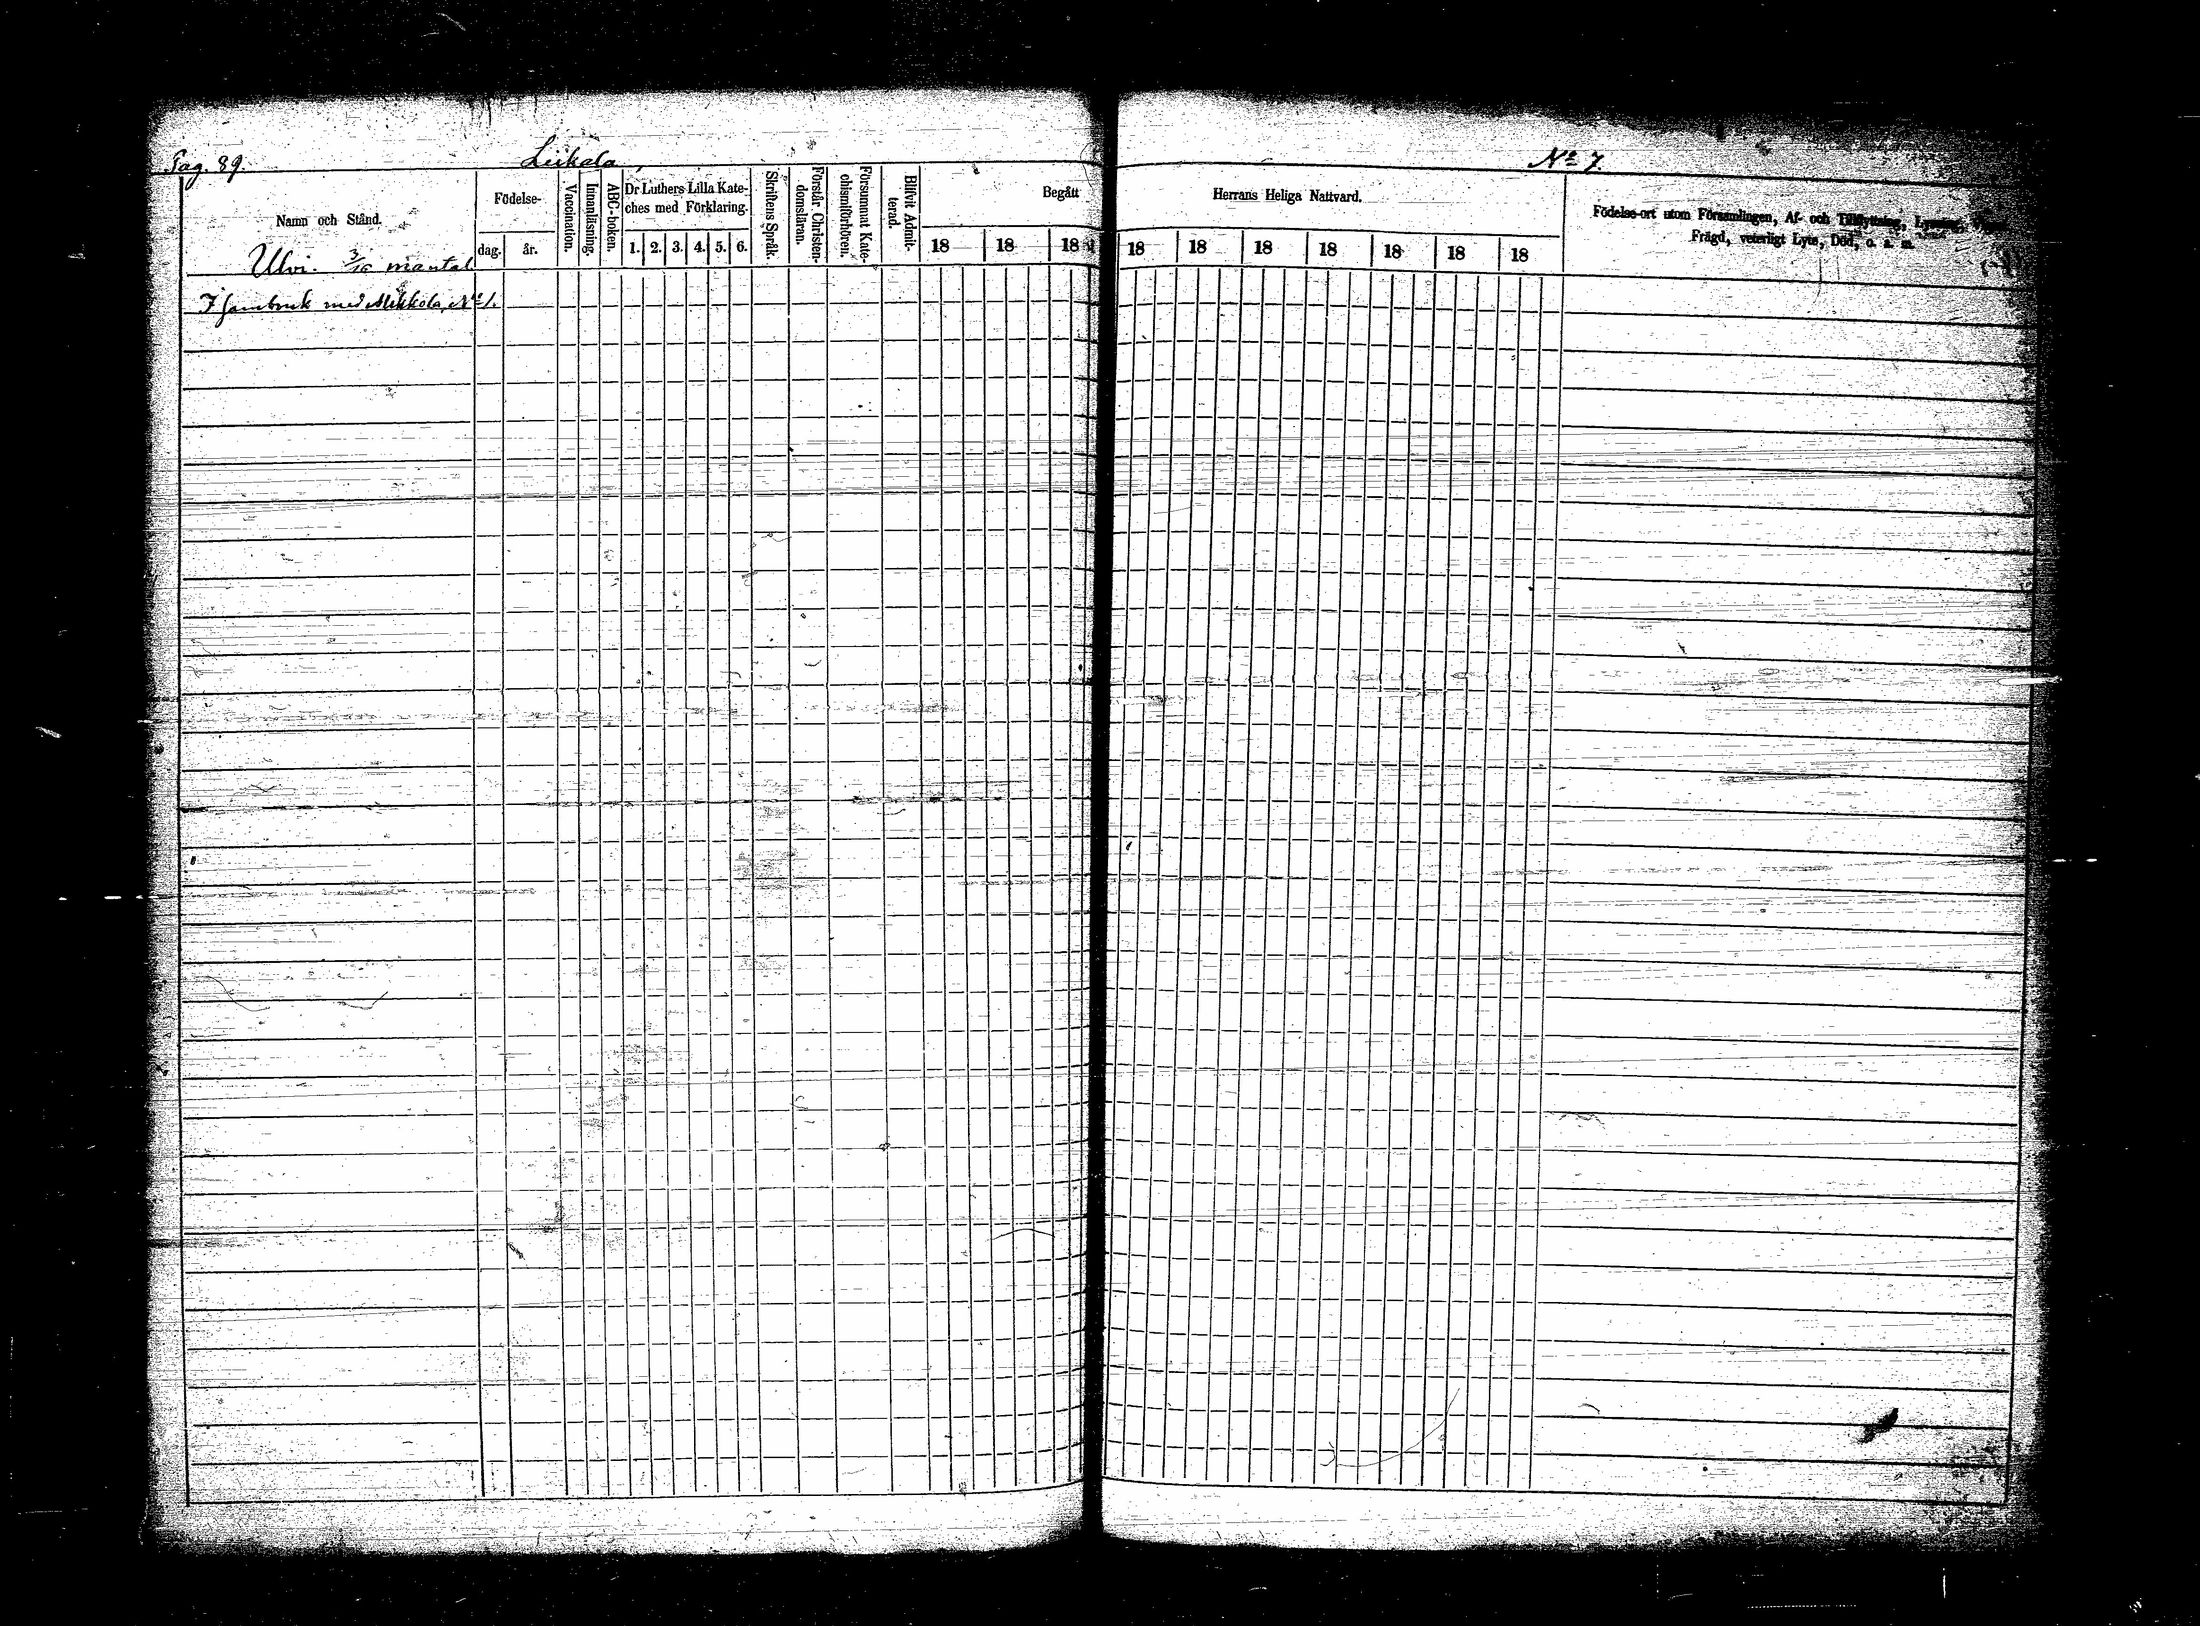 Pag. 89. Leikola, No 7.
Namn och Stånd.
Födelse-
dag. år.
Vaccination.
Innanläsning.
ABC-boken.
Dr Luthers Lilla Kate-
ches med Förklaring.
1. 2. 3. 4. 5. 6.
Skriftens Språk.
Förstår Christen-
domsläran.
Försummat Kate-
chismiförhören.
Blifvit Admit-
terad.
Begått Herrans Heliga Nattvard.
18 18 18 18 18 18 18 18 18 18
Födelse-ort utom Församlingen, Af- och Tillflyttning, Lysning,
Frägd, veterligt Lyte, Död, o. s. m.
Ulvi. 3/16 mantal
I sambruk med Mikkola, No 1.